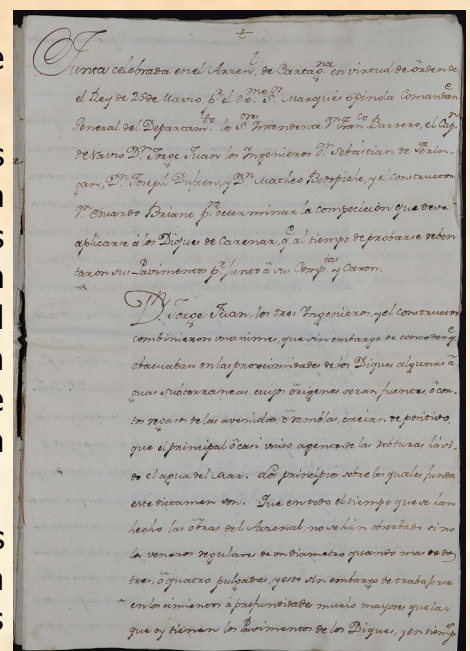 Junta celebrada en el Arzenl. de Cartagna. en virtud de orden de
el Rey de 25 de Marzo pr. el Exmo. Sn. Marqués Spinola Comandte.
General del Departamto. los Sres. Intendente Dn. Franco. Barrero, el Capn.
de Navio Dn. Jorge Juan los Ingenieros Dn. Sebastian de
Dn. Joseph y Dn. Matheo Bodopiche, y el Constructor
Dn. Eduardo Briane pa. determinar la composicion que deve
aplicarse á los Diques de Carenar, q. al tiempo de probarse reben
taron sus Pavimentos pr. junto á sus Comptas. y Caron.
Dn. Jorge Juan, los tres Ingenieros, y el Constructor
combinieron unanimes, que sin embargo de conceder q.
obacuaban en las proximidades de los Diques algunas a
guas subterraneas, cuyos origenes seran fuentes, ó cor
tos repasos de las avenidas, ó ramblas, creian de positivo,
que el principal ó casi unico agente de las roturas há si
do el agua del Mar. Los principios sobre los quales funda
este dictamen son. Que en todo el tiempo que se han
hecho las obras del Arzenal, no se hán observado si no
los veneros regulares de un diametro quando mas de dos
tres, ó quatro pulgadas, y esto sin embargo de trabajarse
en los cimientos á profundidades mucho mayores que las
que oy tienen los Pavimentos de los Diques, y en tiempo